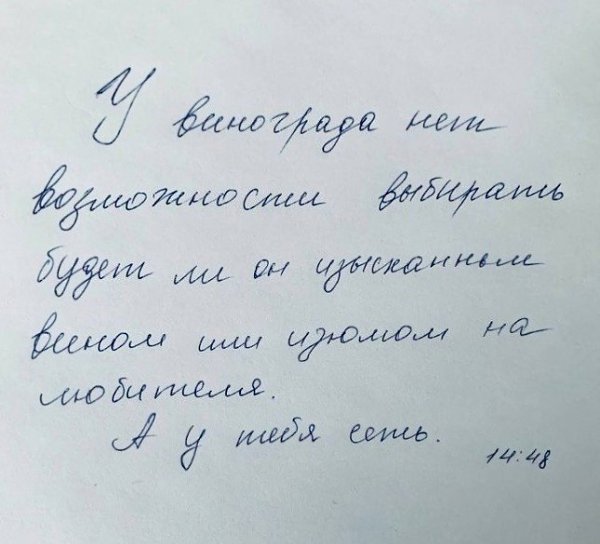 У винограда нет
возможности выбирать
будет ли он изысканным
вином или изюмом на
любителя.
А у тебя есть.
14:48